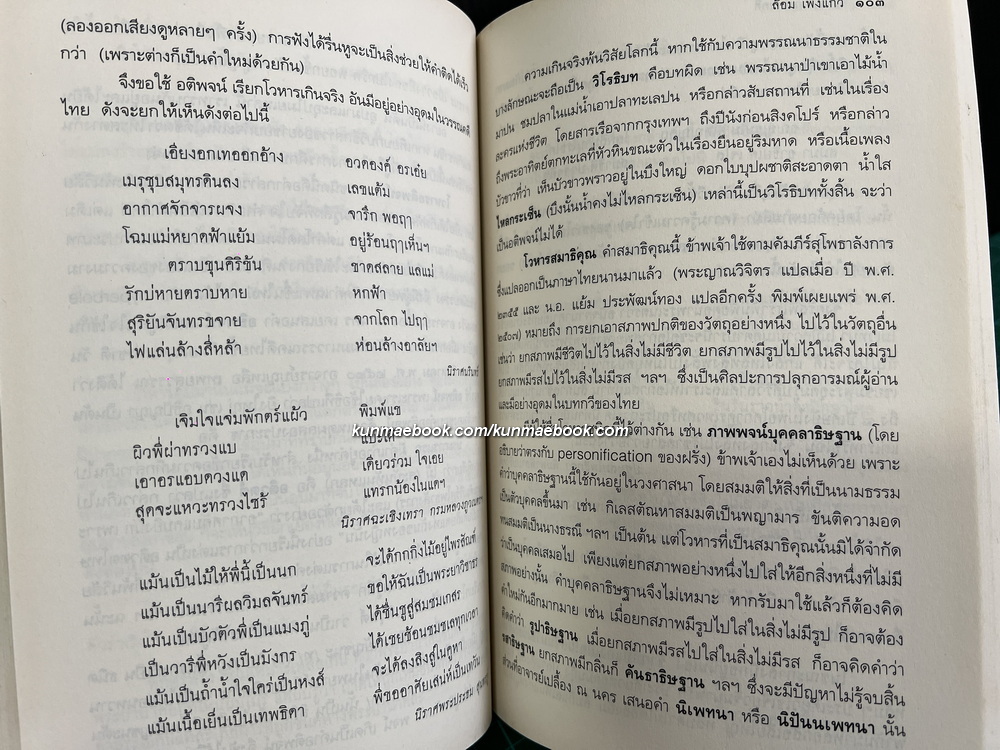 (ลองออกเสียงดูหลายๆ ครั้ง) การฟังได้รื่นหูจะเป็นสิ่งช่วยให้คำติดได้เร็ว
กว่า (เพราะต่างก็เป็นคำใหม่ด้วยกัน)
จึงขอใช้ อติพจน์ เรียกโวหารเกินจริง อันมีอยู่อย่างอุดมในวรรณคดี
ไทย ดังจะยกให้เห็นดังต่อไปนี้
เอียงอกเทออกอ้าง อวดองค์ อรเอย
เมรุชุบสมุทรดินลง เลขแต้ม
อากาศจักจารผจง จารึก พอฤๅ
โฉมแม่หยาดฟ้าแย้ม อยู่ร้อนฤๅเห็นฯ
ตราบขุนคิริข้น ขาดสลาย แลแม่
รักบ่หายตราบหาย หกฟ้า
สุริยันจันทรขจาย จากโลก ไปฤๅ
ไฟแล่นล้างสี่หล้า ห่อนล้างอาลัยฯ
นิราศนรินทร์
เจิมใจแจ่มพักตร์แผ้ว พิมพ์แข
ผิวพี่ผ่าทรวงแบ
เอาอรแอบดวงแด เดียวร่วม ใจเอย
สุดจะแหวะทรวงไซร้ แทรกน้องในแดฯ
นิราศฉะเชิงเทรา กรมหลวงภูวเนตรฯ
แม้นเป็นไม้ให้พี่นี้เป็นนก จะได้กกกิ่งไม้อยู่ไพรสัณฑ์
แม้นเป็นนารีผลวิมลจันทร์ ขอให้ฉันเป็นพระยาวิชาธร
แม้นเป็นบัวตัวพี่เป็นแมงภู่ ได้ชื่นชูสู่สมชมเกสร
เป็นวารีพี่หวังเป็นมังกร ได้เชยช้อนชมชลทุกเวลา
แม้นเป็นถ้ำน้ำใจใคร่เป็นหงส์ จะได้ลงสิงสู่ในคูหา
แม้นเนื้อเย็นเป็นเทพธิดา พี่ขออาศัยเสน่ห์เป็นเทวัน
นิราศพระประธม
ล้อม เพ็งแก้ว ๑๐๓
ความเกินจริงพ้นวิสัยโลกนี้ หากใช้กับความพรรณนาธรรมชาติใน
บางลักษณะจะถือเป็น วิโรธิบท คือบทผิด เช่น พรรณนาป่าเขาเอาไม้น้ำ
มาปน ชมปลาในแม่น้ำเอาปลาทะเลปน หรือกล่าวสับสถานที่ เช่นในเรื่อง
ละครแห่งชีวิต โดยสารเรือจากกรุงเทพฯ ถึงปีนังก่อนสิงคโปร์ หรือกล่าว
ถึงพระอาทิตย์ตกทะเลที่หัวหินขณะตัวในเรื่องยืนอยู่ริมหาด หรือเนื้อเพลง
บัวขาวที่ว่า เห็นบัวขาวพราวอยู่ในบึงใหญ่ ดอกใบบุปผชาติสะอาดตา น้ำใส
ไหลกระเซ็น (บึงนั้นน้ำคงไม่ไหลกระเซ็น) เหล่านี้เป็นวิโรธิบททั้งสิ้น จะว่า
เป็นอติพจน์ไม่ได้
โวหารสมาธิคุณ คำสมาธิคุณนี้ ข้าพเจ้าใช้ตามคัมภีร์สุโพธาลังการ
ซึ่งแปลออกเป็นภาษาไทยนานมาแล้ว (พระญาณวิจิตร แปลเมื่อ ปี พ.ศ.
๒๔๕๕ และ น.อ. แย้ม ประพัฒน์ทอง แปลอีกครั้ง พิมพ์เผยแพร่ พ.ศ.
๒๕๐๗) หมายถึง การยกเอาสภาพปกติของวัตถุอย่างหนึ่ง ไปไว้ในวัตถุอื่น
เช่นว่า ยกสภาพมีชีวิตไปไว้ในสิ่งไม่มีชีวิต ยกสภาพมีรูปไปไว้ในสิ่งไม่มีรูป
ยกสภาพมีรสไปไว้ในสิ่งไม่มีรส ฯลฯ ซึ่งเป็นศิลปะการปลุกอารมณ์ผู้อ่าน
และมีอย่างอุดมในบทกวีของไทย
kunmaebook.com/kunmaebook.com
ไว้ต่างกัน เช่น ภาพพจน์บุคคลาธิษฐาน (โดย
อธิบายว่าตรงกับ personification ของฝรั่ง) ข้าพเจ้าเองไม่เห็นด้วย เพราะ
คำว่าบุคคลาธิษฐานนี้ใช้กันอยู่ในวงศาสนา โดยสมมติให้สิ่งที่เป็นนามธรรม
เป็นตัวบุคคลขึ้นมา เช่น กิเลสตัณหาสมมติเป็นพญามาร ขันติความอด
ทนสมมติเป็นนางธรณี ฯลฯ เป็นต้น แต่โวหารที่เป็นสมาธิคุณนั้นมิได้จำกัด
ว่าเป็นบุคคลเสมอไป เพียงแต่ยกสภาพอย่างหนึ่งไปใส่ให้อีกสิ่งหนึ่งที่ไม่มี
สภาพอย่างนั้น คำบุคคลาธิษฐานจึงไม่เหมาะ หากรับมาใช้แล้วก็ต้องคิด
คำใหม่กันอีกมากมาย เช่น เมื่อยกสภาพมีรูปไปใส่ในสิ่งไม่มีรูป ก็อาจต้อง
คิดคำว่า รูปาธิษฐาน เมื่อยกสภาพมีรสไปใส่ในสิ่งไม่มีรส ก็อาจคิดคำว่า
รสาธิษฐาน ยกสภาพมีกลิ่นก็ คันธาธิษฐาน ฯลฯ ซึ่งจะมีปัญหาไม่รู้จบสิ้น
ส่วนที่อาจารย์เปลื้อง ณ นคร เสนอคำ นิเพทนา หรือ นิปันนเพทนา นั้น